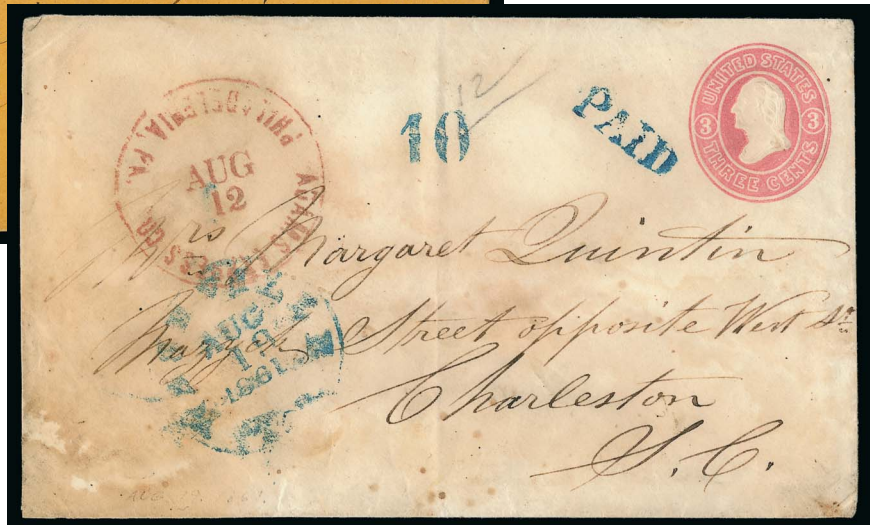 UNITED STATES
3 3
THREE CENTS
PAID
10
12
ADAMS EXPRESS CO
PHILADELPHIA, PA.
AUG
12
Mrs Margaret Quintin
Mazyck Street opposite West St
Charleston
S. C.
AUG
1861